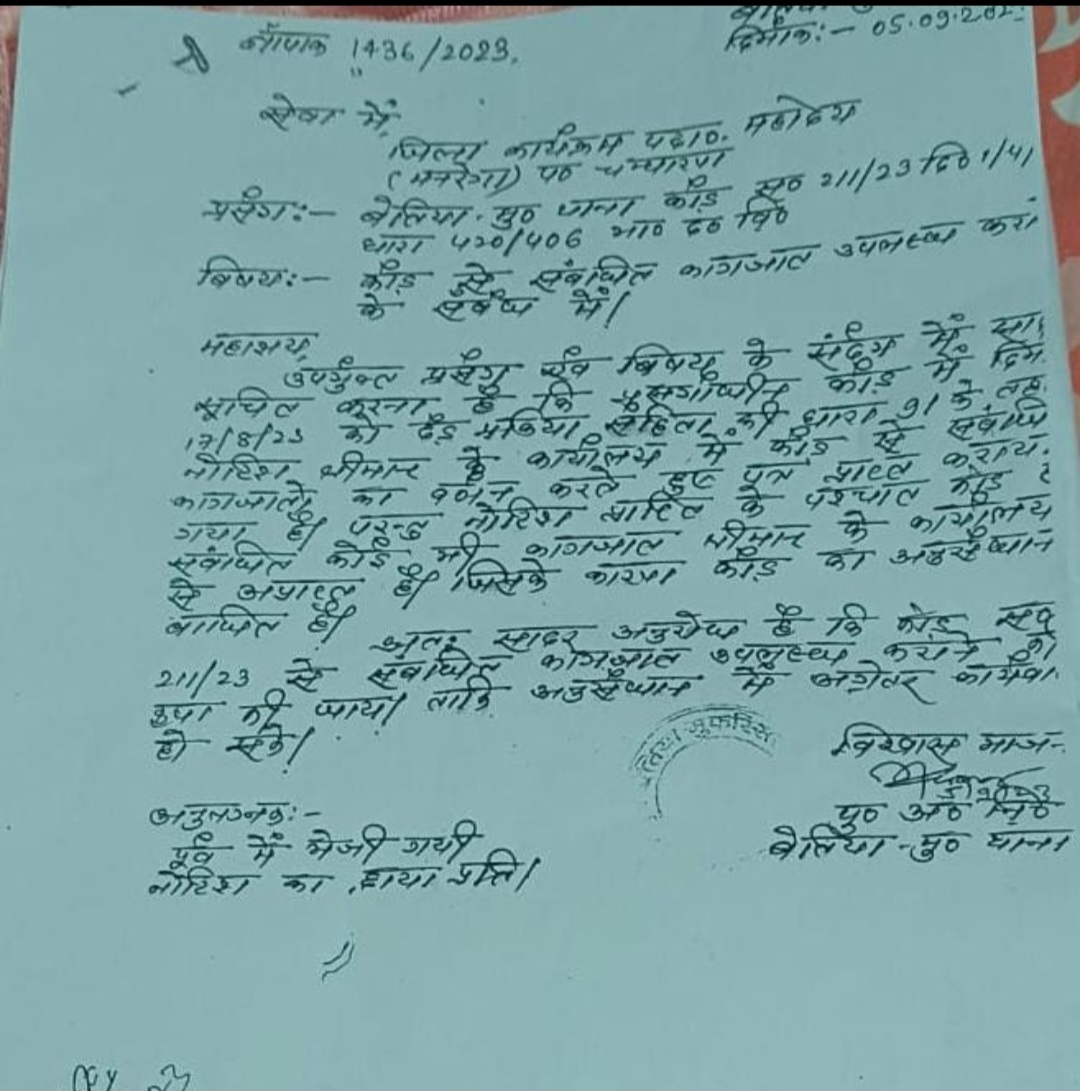 ज्ञापांक 1436/2023.
दिनांक:- 05.09.202
सेवा में,
जिला कार्यक्रम पदा०. महोदय
(मनरेगा) प० चम्पारण
प्रसंग:- बेतिया. मु० थाना कांड स० 211/23 दि० 1/4/
धारा 420/406 भा० द० वि०
बिषय:- कांड से संबंधित कागजात उपलब्ध करा
के संबंध में।
महाशय,
उपर्युक्त प्रसंग एंव बिषय के संदर्भ में सा
सूचित करना है कि प्रसंगाधीन कांड में दिन
17/8/23 को दंड प्रक्रिया संहिता की धारा 91 के तह
नोटिश श्रीमान के कार्यालय में कांड से संबंधि
कागजातो का वर्णन करते हुए पत्र प्राप्त कराय
गया है। परन्तु नोटिश प्राप्ति के पश्चात कांड
संबंधित कोई भी कागजात श्रीमान के कार्यालय
से अप्राप्त है। जिसके कारण कांड का अनुसंधान
बाधित है।
अतः सादर अनुरोध है कि कांड स०
211/23 से संबंधित कागजात उपलब्ध कराने की
कृपा की जाय। ताकि अनुसंधान में अग्रेतर कार्यवा
हो सके।
विश्वास भाज-
पु० अ० नि०
बेतिया-मु० थाना
अनुलग्नक:-
पूर्व में भेजी गयी
नोटिश का छाया प्रति।